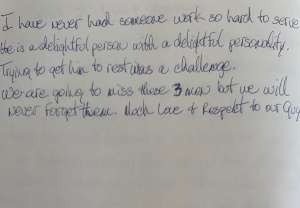 I have never had someone work so hard to serve
He is a delightful person with a delightful personality.
Trying to get him to rest was a challenge.
We are going to miss those 3 men but we will
never forget them. Much Love & Respekt to our Guy